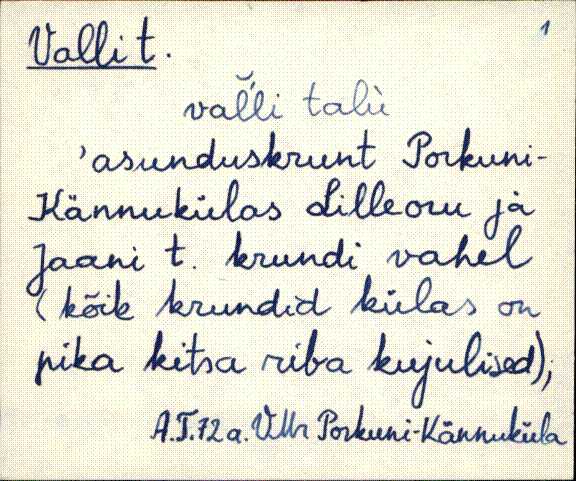 Valli t.
1
val̆'li talù
'asunduskrunt Porkuni-
Kännukülas Lilleoru ja
Jaani t. krundi vahel
(kõik krundid külas on
pika kitsa riba kujulised);
A.T.72 a. VMr Porkuni-Kännuküla